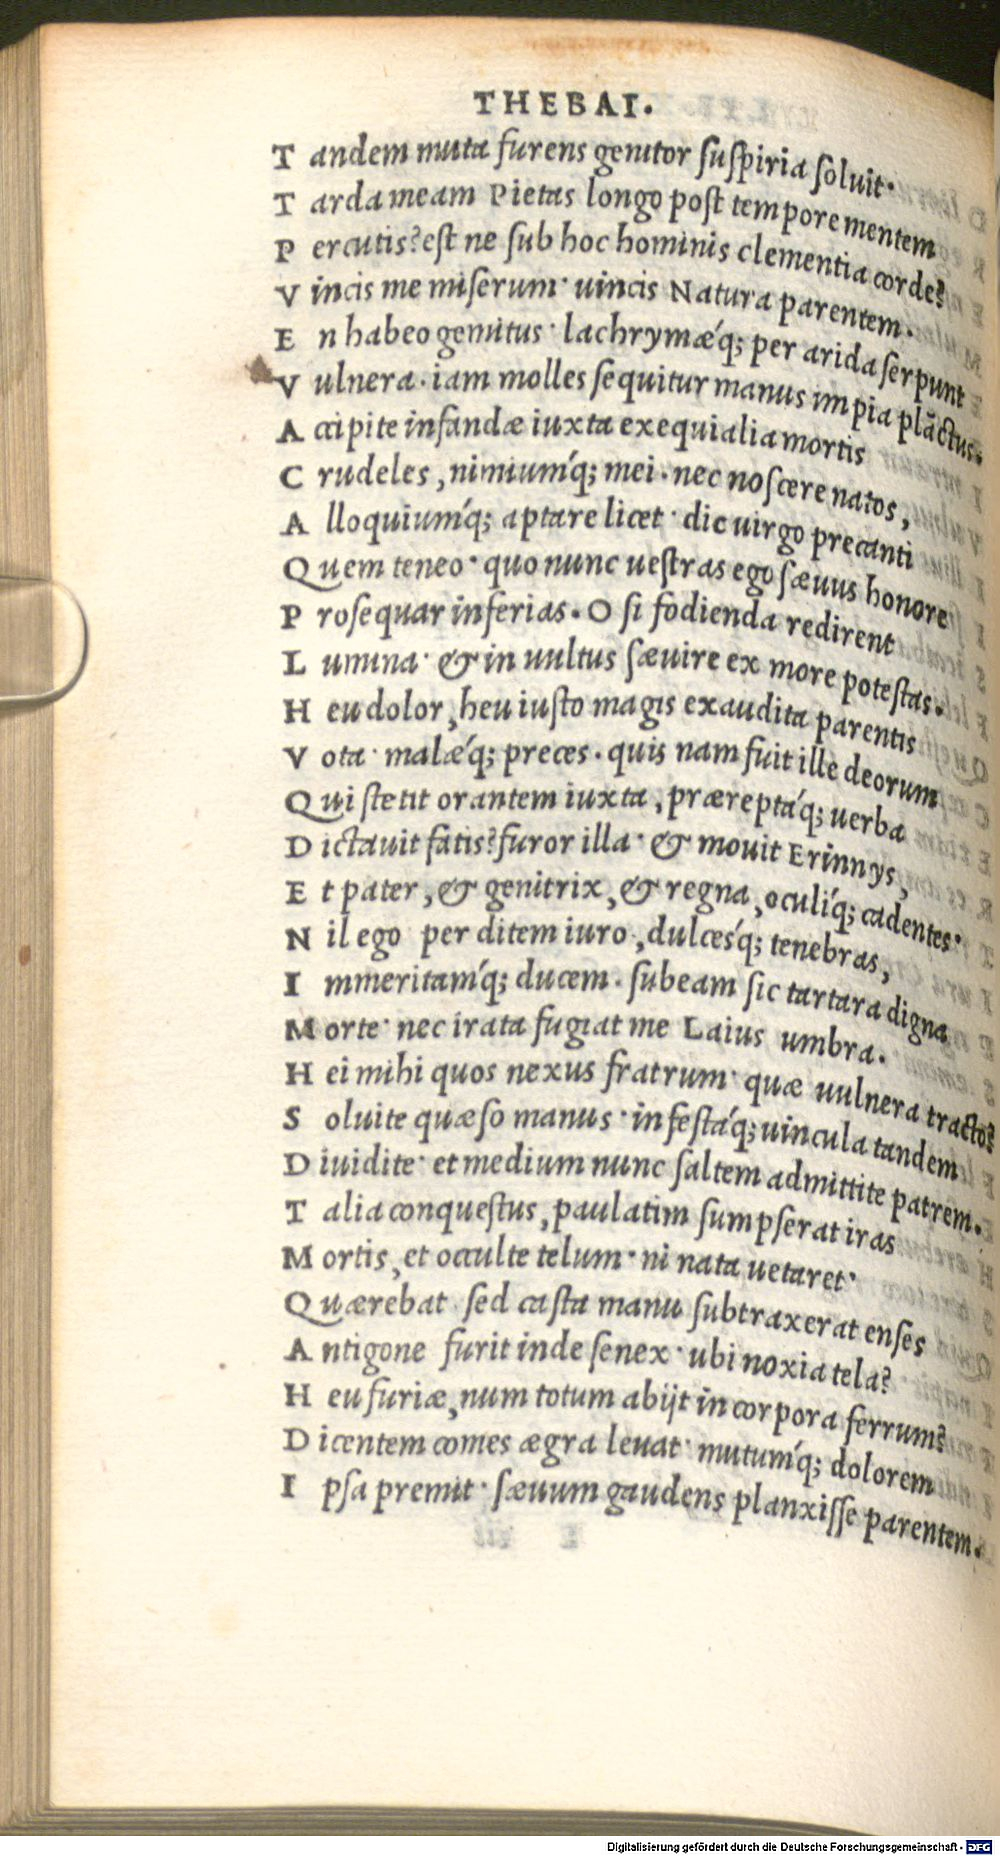 THEBAI.
T andem muta furens genitor suspiria soluit·
T arda meam Pietas longo post tempore mentem
P ercutis? est ne sub hoc hominis clementia corde?
V incis me miserum· uincis Natura parentem.
E n habeo gemitus· lachrymæq́; per arida serpunt
V ulnera. iam molles sequitur manus impia plāctus.
A ccipite infandæ iuxta exequialia mortis
C rudeles, nimiumq́; mei. nec noscere natos,
A lloquiumq́; aptare licet· dic uirgo precanti
Q uem teneo· quo nunc uestras ego sæuus honore
P rosequar inferias. O si fodienda redirent
L umina· & in uultus sæuire ex more potestas.
H eu dolor, heu iusto magis exaudita parentis
V ota· malæq́; preces. quis nam fuit ille deorum
Q ui stetit orantem iuxta, præreptaq́; uerba
D ictauit fatis? furor illa· & mouit Erinnys,
E t pater, & genitrix, & regna, oculiq́; cadentes·
N il ego per ditem iuro, dulcesq́; tenebras,
I mmeritamq́; ducem. subeam sic tartara digna
M orte· nec irata fugiat me Laius umbra.
H ei mihi quos nexus fratrum· quæ uulnera tracto?
S oluite quæso manus· infestaq́; uincula tandem
D iuidite· et medium nunc saltem admittite patrem.
T alia conquestus, paulatim sumpserat iras
M ortis, et occulte telum· ni nata uetaret·
Q uærebat· sed casta manu subtraxerat enses
A ntigone furit inde senex· ubi noxia tela?
H eu furiæ, num totum abijt in corpora ferrum?
D icentem comes ægra leuat· mutumq́; dolorem
I psa premit· sæuum gaudens planxisse parentem.
Digitalisierung gefördert durch die Deutsche Forschungsgemeinschaft - DFG